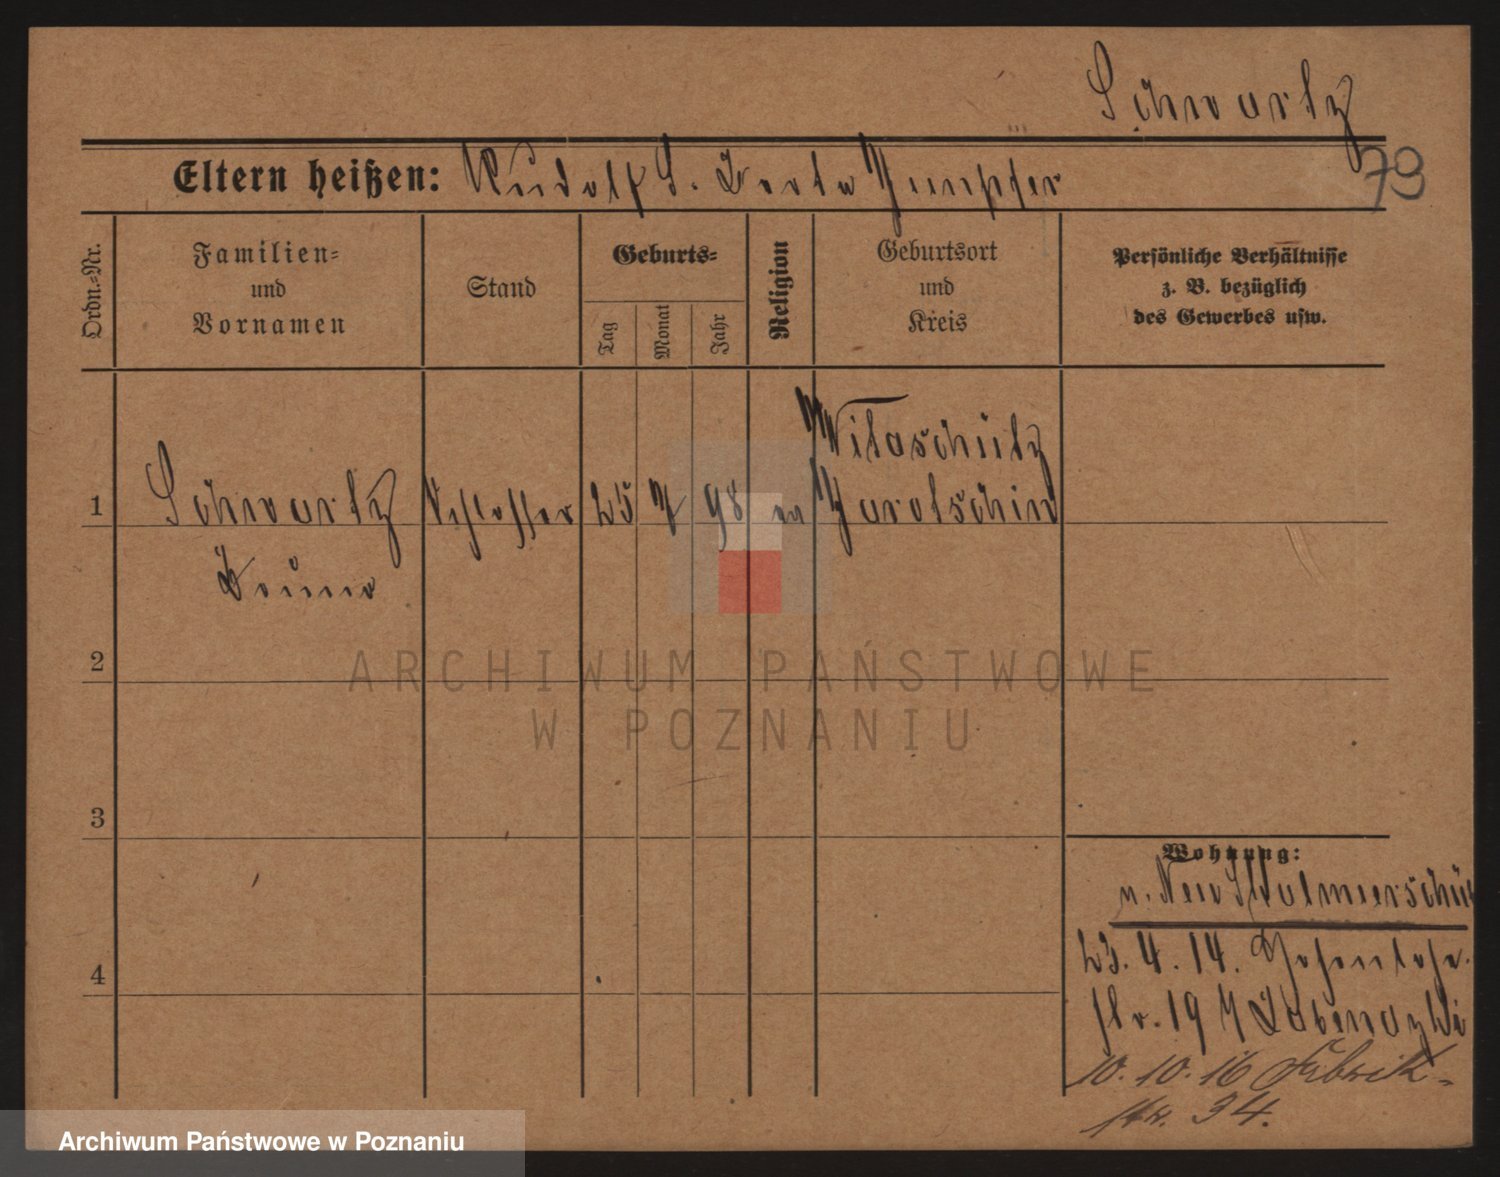 Schwartz
73
Eltern heißen: Rudolf S. Berta Jumpfer
Ordn.-Nr.
Familien-
und
Vornamen
Stand
Geburts-
Tag
Monat
Jahr
Religion
Geburtsort
und
Kreis
Persönliche Verhältnisse
z. B. bezüglich
des Gewerbes usw.
Witaschütz
1 Schwartz Schlosser 25 7 98 ev Jarotschin
Bruno
2
ARCHIWUM PAŃSTWOWE
W POZNANIU
3
Wohnung:
v. Neu
4
23. 4. 14. Hohenlohe-
str. 19
10. 10. 16 Fabrik-
str. 34.
Archiwum Państwowe w Poznaniu